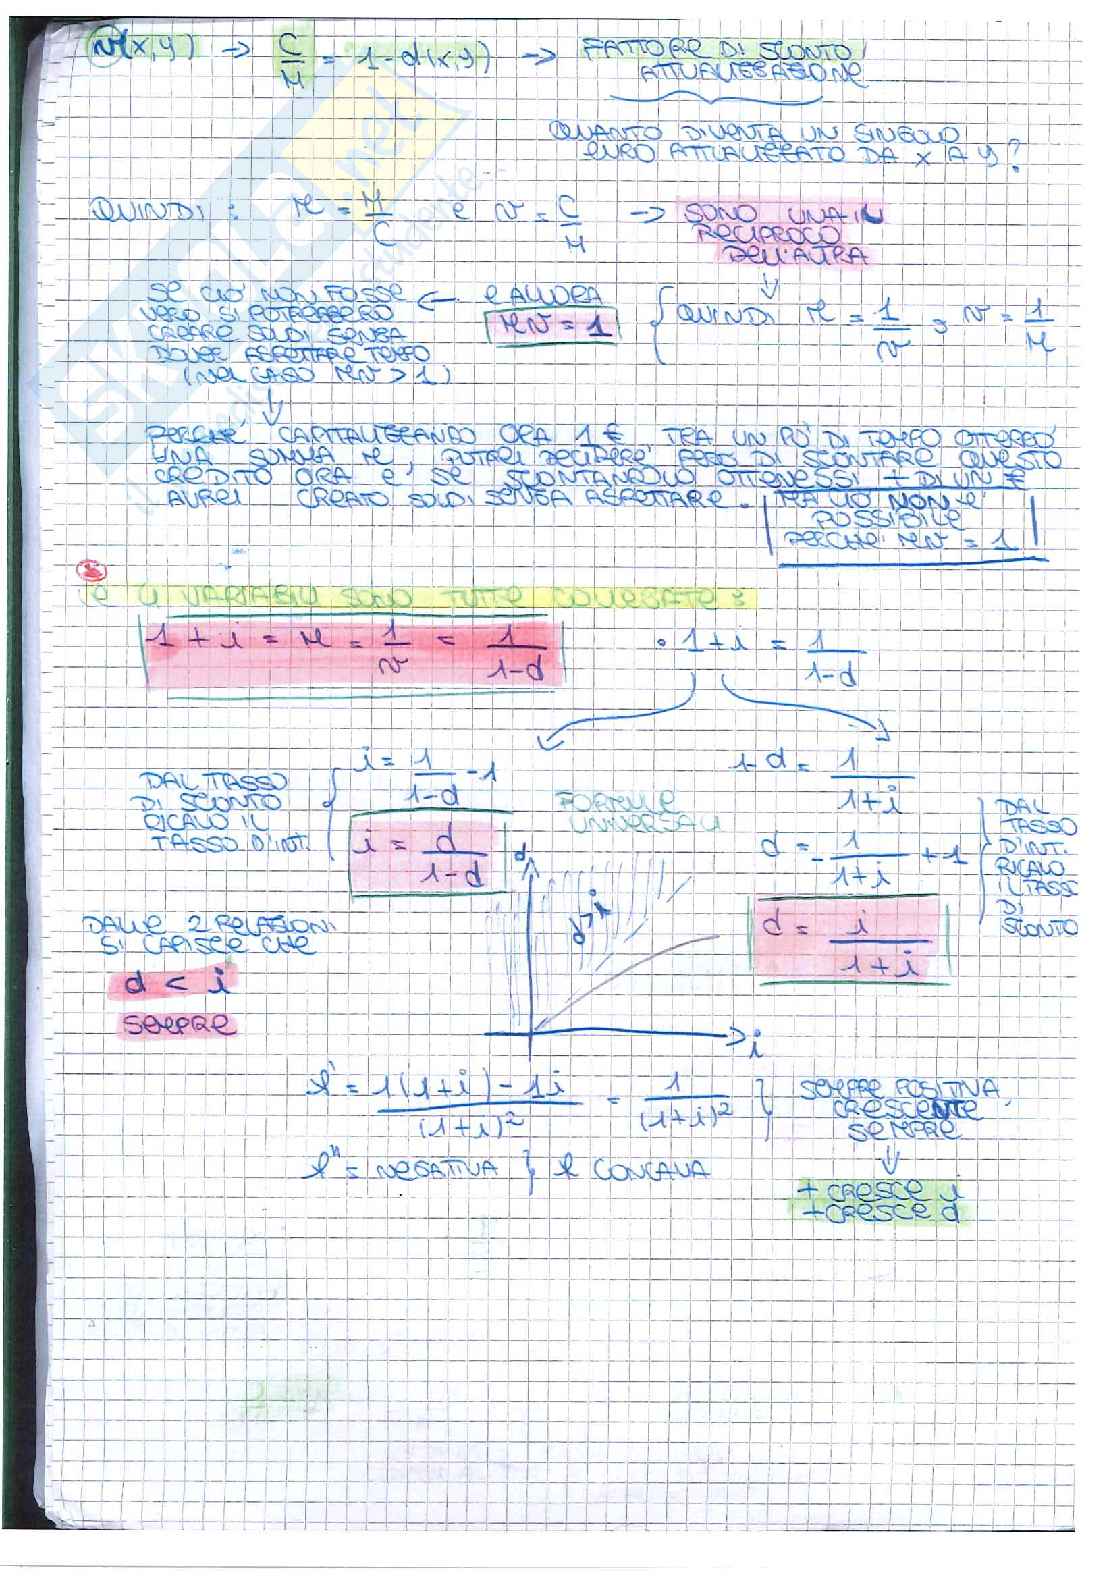 v(x,y) → C/M = 1-d(x,y) → FATTORE DI SCONTO/
ATTUALIZZAZIONE
QUANTO DIVENTA UN SINGOLO
EURO ATTUALIZZATO DA X A Y?
QUINDI: r = M/C e v = C/M → SONO UNA IL
RECIPROCO
DELL'ALTRA
SE CIO' NON FOSSE ← E ALLORA
VERO SI POTREBBERO
CREARE SOLDI SENZA
DOVER ASPETTARE TEMPO
(NEL CASO rv > 1)
rv = 1
QUINDI r = 1/v e v = 1/r
PERCHE' CAPITALIZZANDO ORA 1€, TRA UN PO' DI TEMPO OTTERRO'
UNA SOMMA r, POTREI DECIDERE PERO' DI SCONTARE QUESTO
CREDITO ORA E, SE SCONTANDOLO OTTENESSI + DI UN €
AVREI CREATO SOLDI SENZA ASPETTARE. MA CIO' NON E'
POSSIBILE
PERCHE' rv = 1
LE 4 VARIABILI SONO TUTTE COLLEGATE:
1 + i = r = 1/v = 1/1-d
• 1+i = 1/1-d
DAL TASSO
DI SCONTO
RICAVO IL
TASSO D'INT.
i = 1/1-d - 1
i = d/1-d
FORMULE
UNIVERSALI
1-d = 1/1+i
d = - 1/1+i + 1
d = i/1+i
DAL
TASSO
D'INT.
RICAVO
IL TASSO
DI
SCONTO
DALLE 2 RELAZIONI
SI CAPISCE CHE
d < i
SEMPRE
d
d>i
i
f' = 1(1+i) - 1i/(1+i)² = 1/(1+i)²
SEMPRE POSITIVA,
CRESCENTE
SEMPRE
f" = NEGATIVA } f CONCAVA
+ CRESCE i
+ CRESCE d